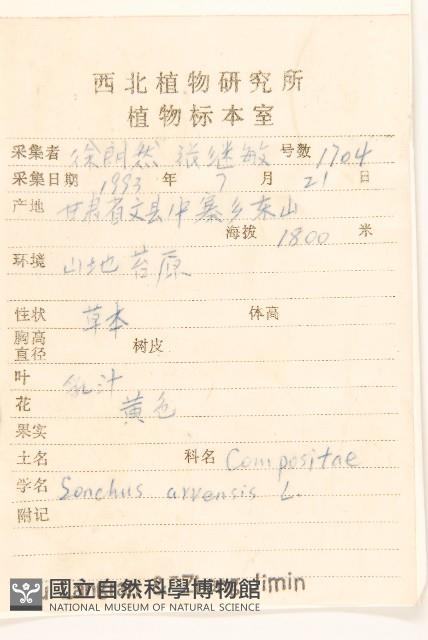 西北植物研究所
植物标本室
采集者 徐朗然 张继敏 号数 1704
采集日期 1993 年 7 月 21 日
产地 甘肃省文县中寨乡东山
海拔 1800 米
环境 山地 苔原
性状 草本 体高
胸高直径 树皮
叶 乳汁
花 黄色
果实
土名 科名 Compositae
学名 Sonchus arvensis L.
附记
國立自然科學博物館
NATIONAL MUSEUM OF NATURAL SCIENCE